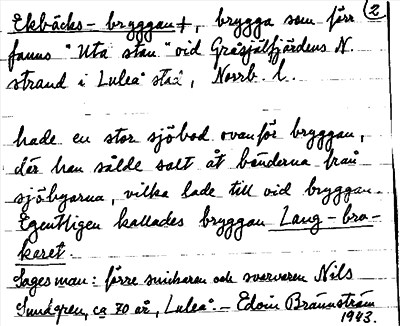 Ekbäcks-bryggan †, brygga som förr (2)
fanns "Uta stan" vid Gråsjälfjärdens N.
strand i Luleå stad, Norrb. l.
hade en stor sjöbod ovanför bryggan,
där han sålde salt åt bönderna från
sjöbyarna, vilka lade till vid bryggan.
Egentligen kallades bryggan Lang-bro-
karet.
Sagesman: förre snickaren och svarvaren Nils
Sundgren, ca 70 år, Luleå. - Edvin Brännström
1943.